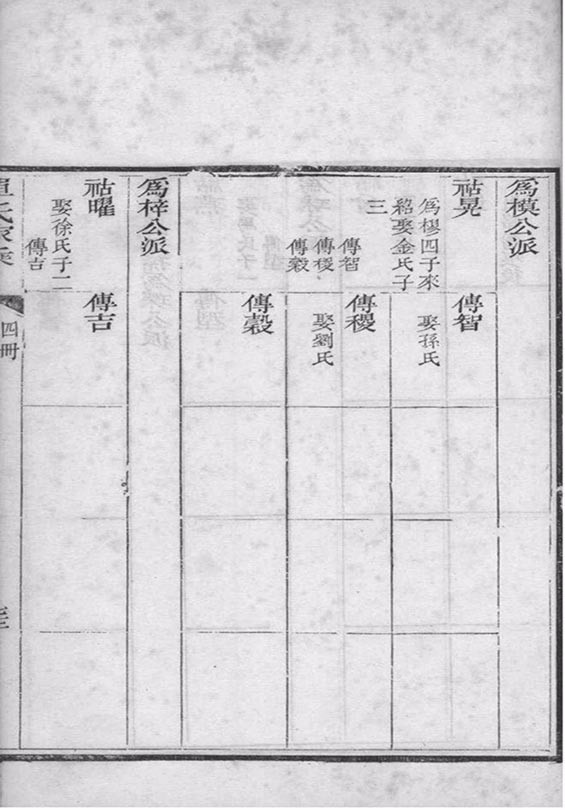 為模公派
祜晃
為櫻四子來
紹娶金氏子
三
傳智
傳稷
傳穀
傳智
娶孫氏
傳稷
娶劉氏
傳穀
為梓公派
祜曜
娶徐氏子二
傳吉
傳吉
四冊